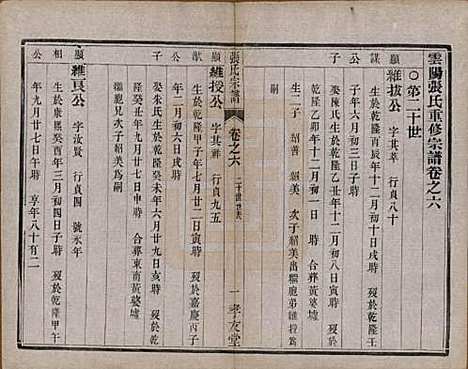 雲陽張氏重修宗譜卷之六
○第二十世
顯謀公維拔公 字其萃 行貞八十
生於乾隆丙辰年十二月初十日戌時 歿於乾隆壬
子年六月初三日子時
娶陳氏生於乾隆乙丑年十二月初八日戌時 歿於
乾隆乙卯年十二月初一日 時 合葬黃婆墩
生二子 紹普 紹美 次子紹美出繼胞弟維授為
嗣
張氏宗譜 卷之六 二十世世表 一 孝友堂
顯猷公維授公 字其 行貞九五
生於乾隆甲子年七月二十二日寅時 歿於嘉慶丙寅
年二月初六日 時
娶朱氏生於乾隆癸未年六月廿九日亥時 歿於乾
隆癸丑年九月廿七日申時 合葬東南黃婆墩
繼胞兄次子紹美為嗣
顯相公維貞公 字汝賢 行貞四 號永年
生於康熙癸酉年三月初四日子時 歿於乾隆甲午
年九月廿七日午時 享年八十有二